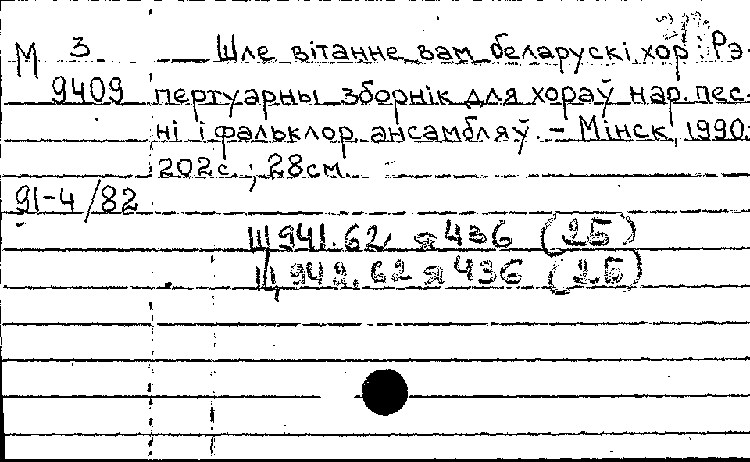 М 3 Шле вітанне вам беларускі хор : Рэ-
9409 пертуарны зборнік для хораў нар. пес-
ні і фальклор. ансамбляў. - Мінск, 1990.
202с. ; 28см.
91-4/82
Щ941.62 я436 (2Б)
Щ942.62 я436 (2Б)